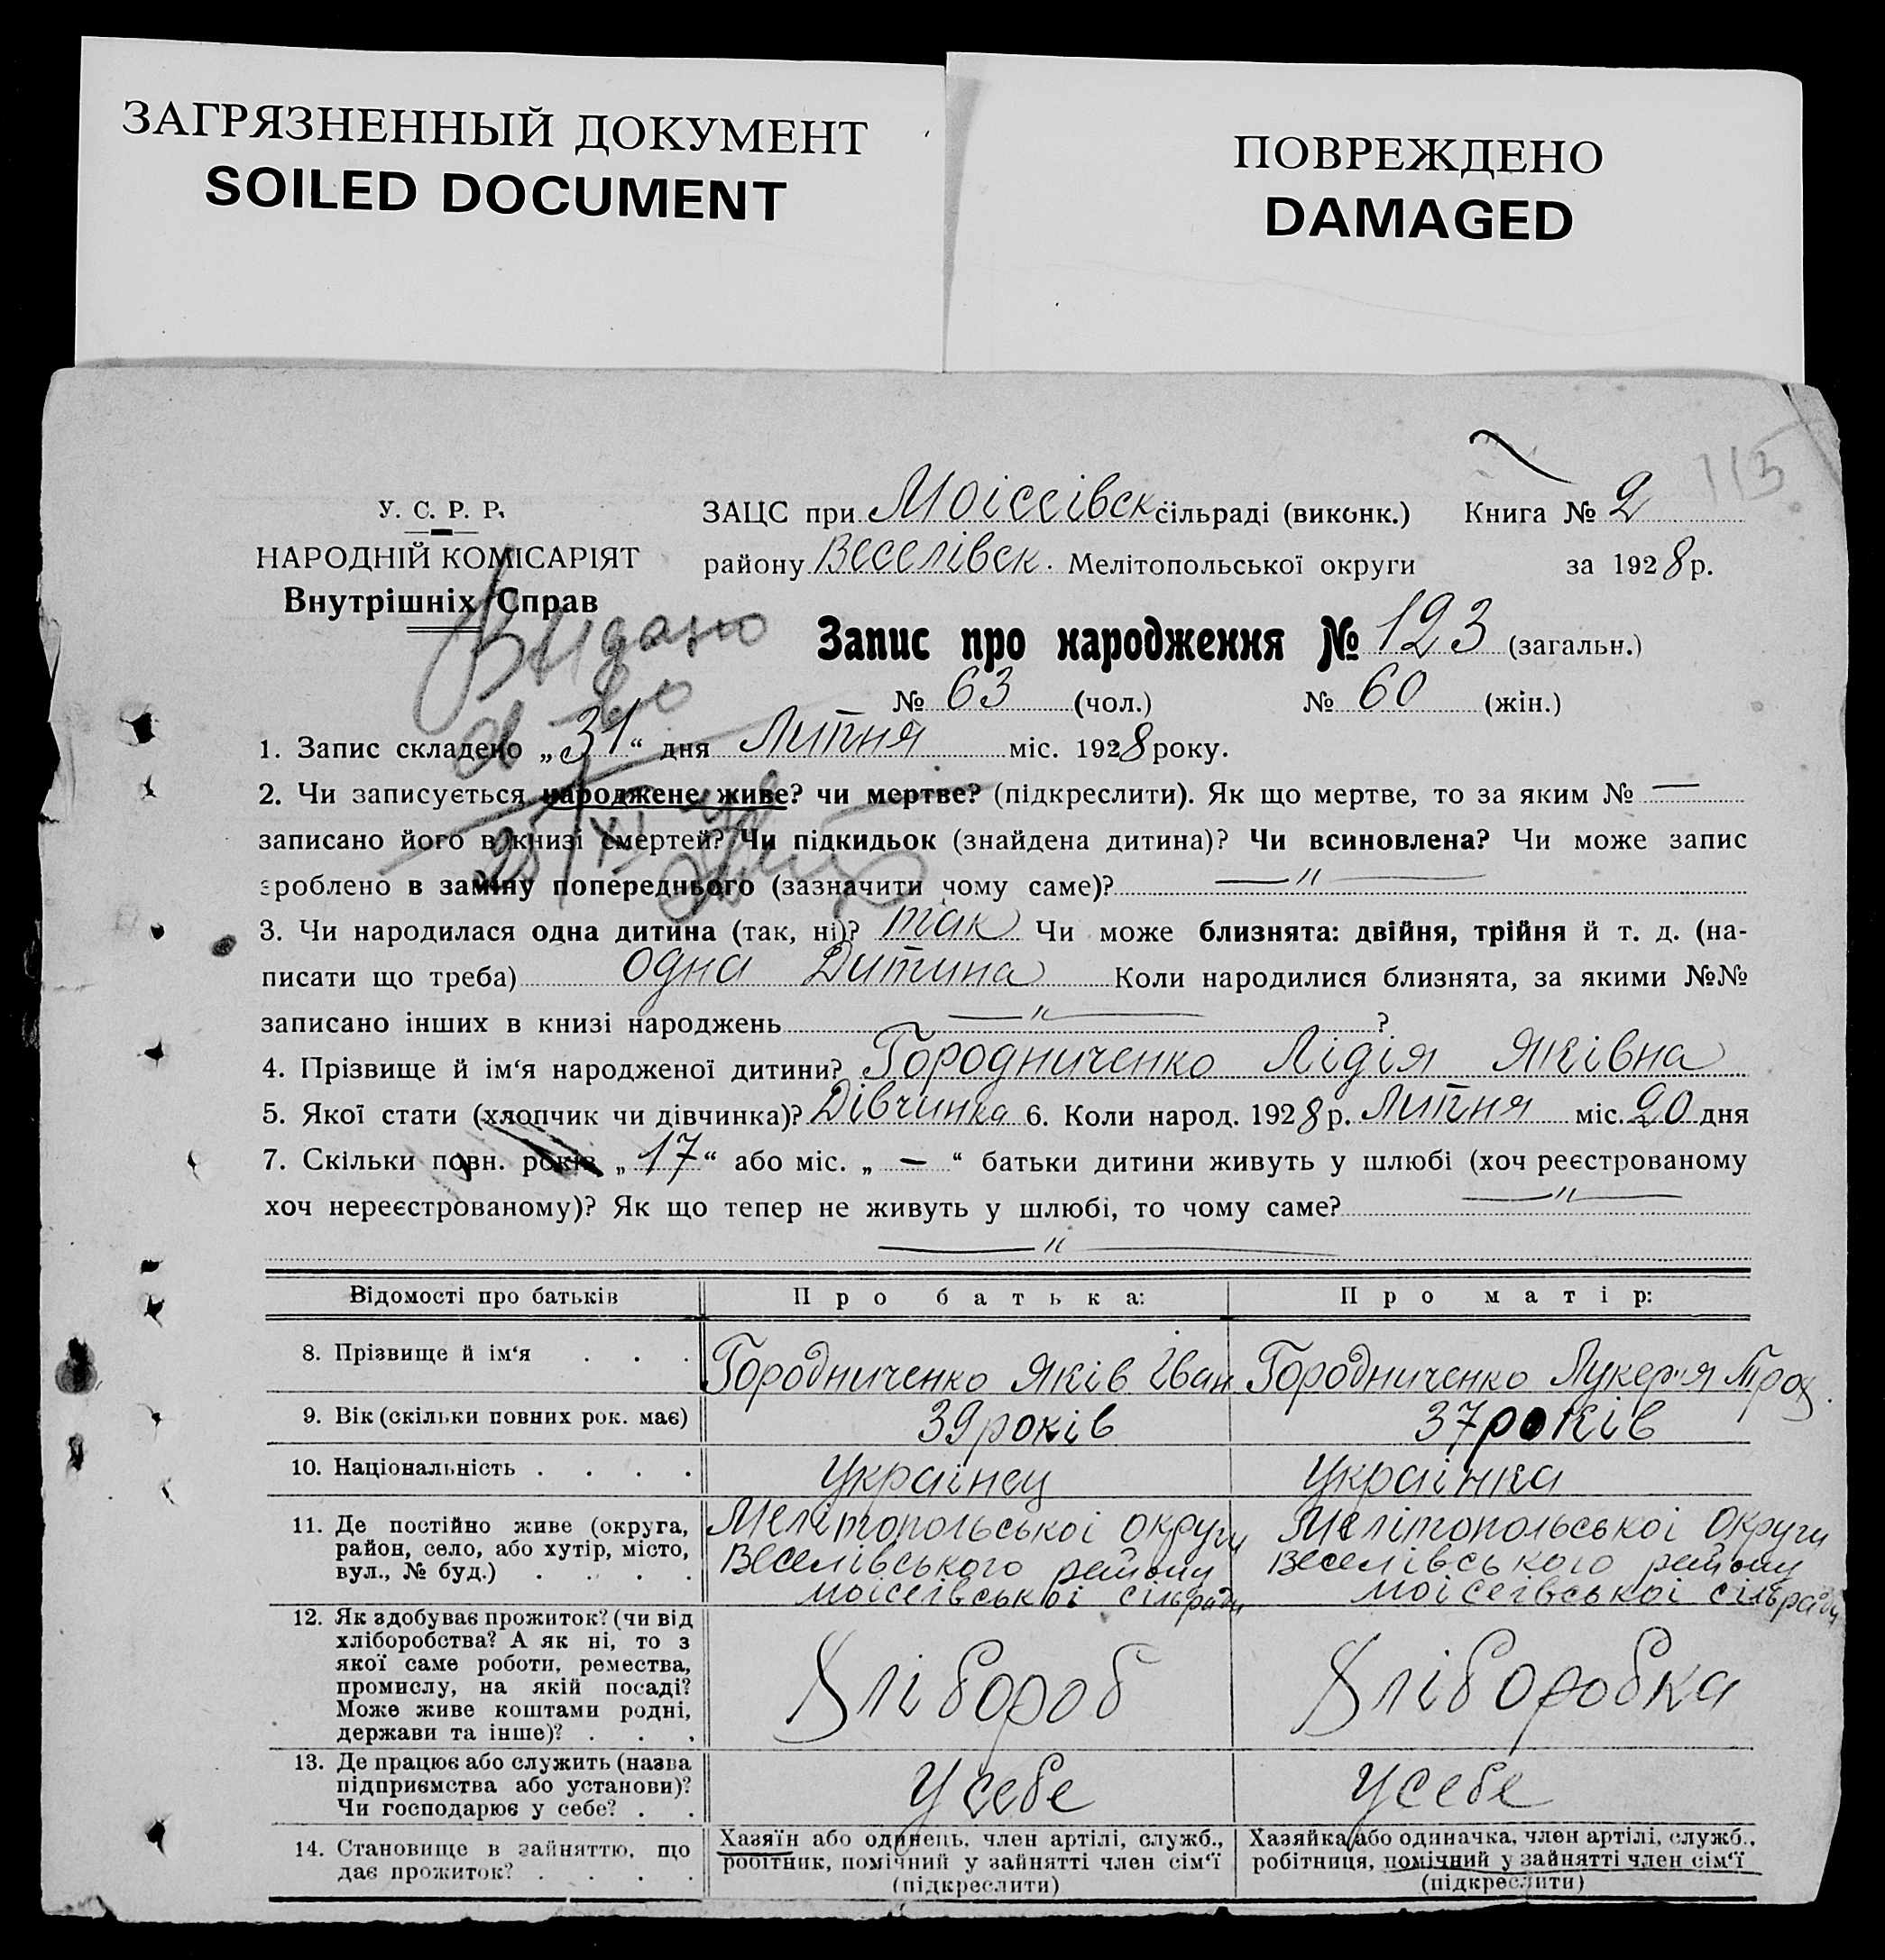 ЗАГРЯЗНЕННЫЙ ДОКУМЕНТ
SOILED DOCUMENT
ПОВРЕЖДЕНО
DAMAGED
115
У. С. Р. Р.
НАРОДНІЙ КОМІСАРІЯТ
Внутрішніх Справ
ЗАЦС при Моісеівск сільраді (виконк.) Книга № 2
району Веселівск. Мелітопольської округи за 1928 р.
Видано
Запис про народження № 123 (загальн.)
№ 63 (чол.) № 60 (жін.)
1. Запис складено „31“ дня Липня міс. 1928 року.
2. Чи записується народжене живе? чи мертве? (підкреслити). Як що мертве, то за яким № —
записано його в книзі смертей? Чи підкидьок (знайдена дитина)? Чи всиновлена? Чи може запис
зроблено в заміну попереднього (зазначити чому саме)? —〃—
25/XI
3. Чи народилася одна дитина (так, ні)? так Чи може близнята: двійня, трійня й т. д. (на-
писати що треба) Одна Дитина Коли народилися близнята, за якими №№
записано інших в книзі народжень —〃— ?
4. Прізвище й ім‘я народженої дитини? Городниченко Лідія Яківна
5. Якої стати (хлопчик чи дівчинка)? Дівчинка 6. Коли народ. 1928 р. Липня міс. 20 дня
7. Скільки повн. років „17“ або міс. „—“ батьки дитини живуть у шлюбі (хоч реєстрованому
хоч нереєстрованому)? Як що тепер не живуть у шлюбі, то чому саме? —〃—
—〃—
Відомості про батьків Про батька: Про матір:
8. Прізвище й ім‘я . . . Городниченко Яків Іван Городниченко Лукер'я Троф.
9. Вік (скільки повних рок. має) 39 років 37 років
10. Національність . . . . Украінец Украінка
11. Де постійно живе (округа, Мелітопольськоі округи Мелітопольськоі Округи
район, село, або хутір, місто, Веселівського району Веселівського району
вул., № буд.) . . . . Моісеівськоі сільради Моісеівськоі сільради
12. Як здобуває прожиток? (чи від
хліборобства? А як ні, то з
якої саме роботи, ремества,
промислу, на якій посаді? Хлібороб Хліборобка
Може живе коштами родні,
держави та інше)? . . .
13. Де працює або служить (назва
підприємства або установи)? У себе У себе
Чи господарює у себе? . .
14. Становище в зайняттю, що Хазяїн або одинець, член артілі, служб., Хазяйка або одиначка, член артілі, служб.,
дає прожиток? . . . . робітник, помічний у зайнятті член сім‘ї робітниця, помічний у зайнятті член сім‘ї
(підкреслити) (підкреслити)